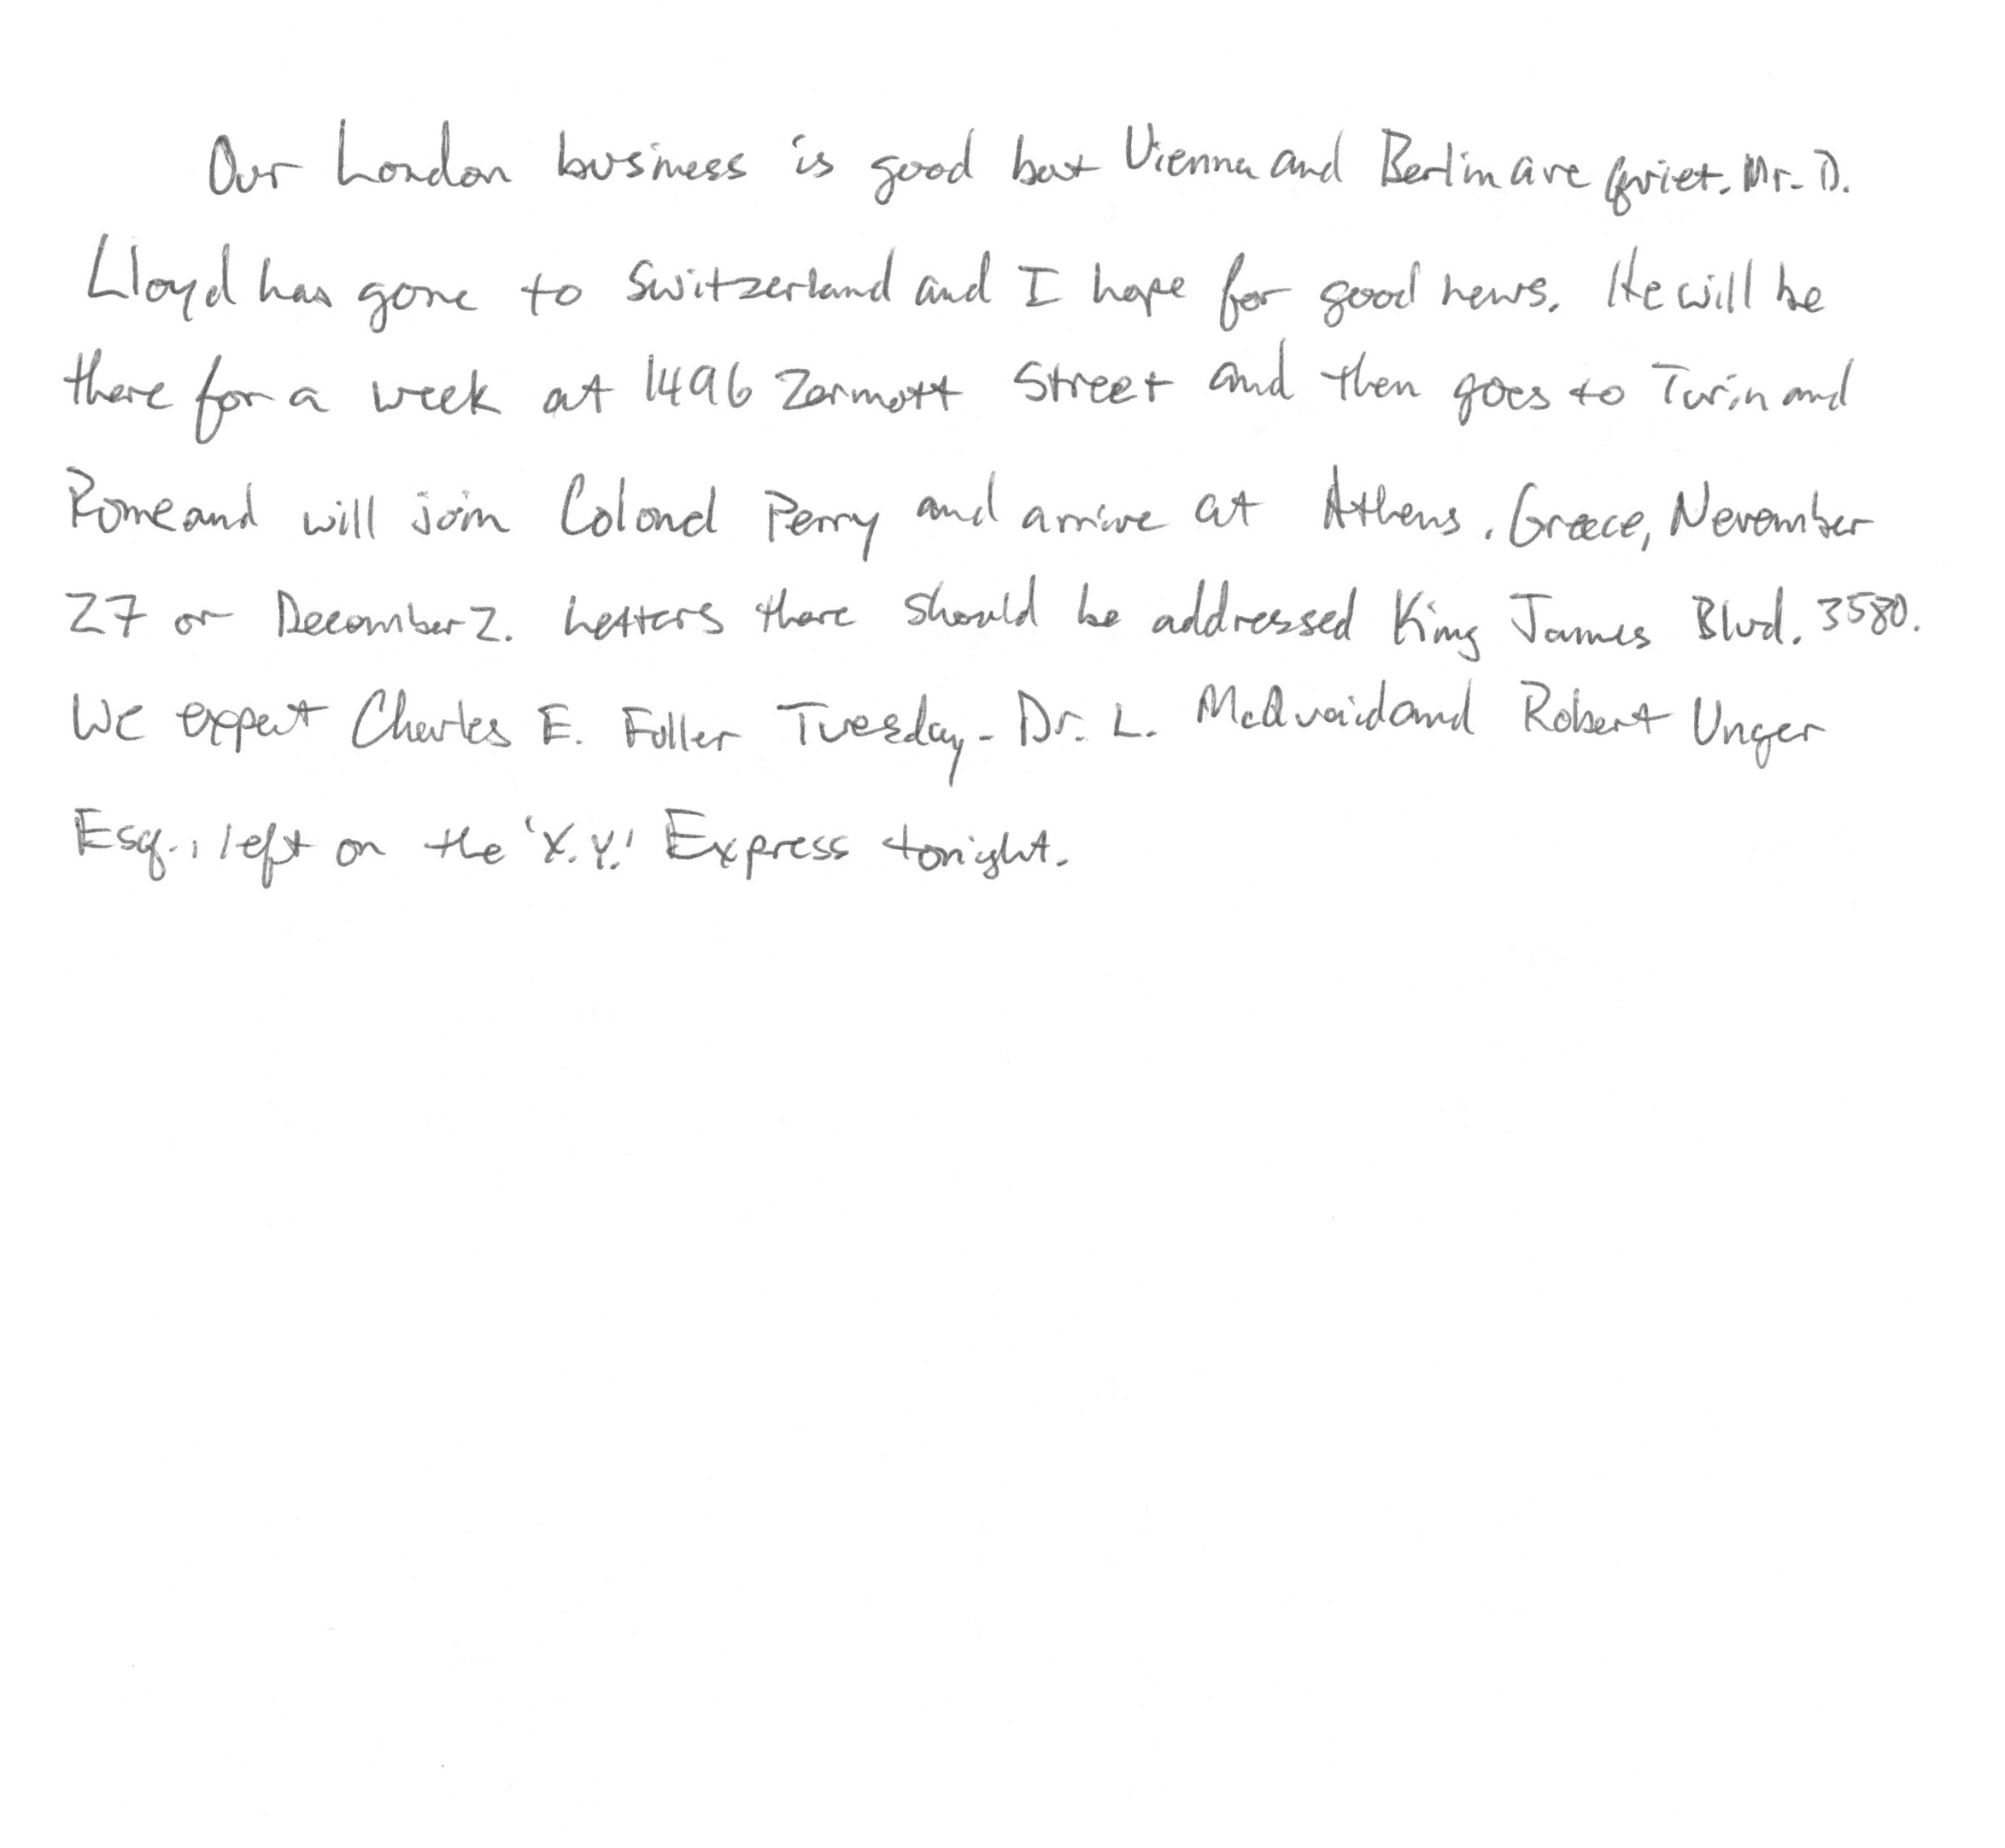 Our London business is good but Vienna and Berlin are quiet. Mr. D.
Lloyd has gone to Switzerland and I hope for good news. He will be
there for a week at 1496 Zermott Street and then goes to Turin and
Rome and will join Colonel Perry and arrive at Athens, Greece, November
27 or December 2. Letters there should be addressed King James Blvd. 3580.
We expect Charles E. Fuller Tuesday. Dr. L. McQuaid and Robert Unger
Esq., left on the 'X.Y.' Express tonight.